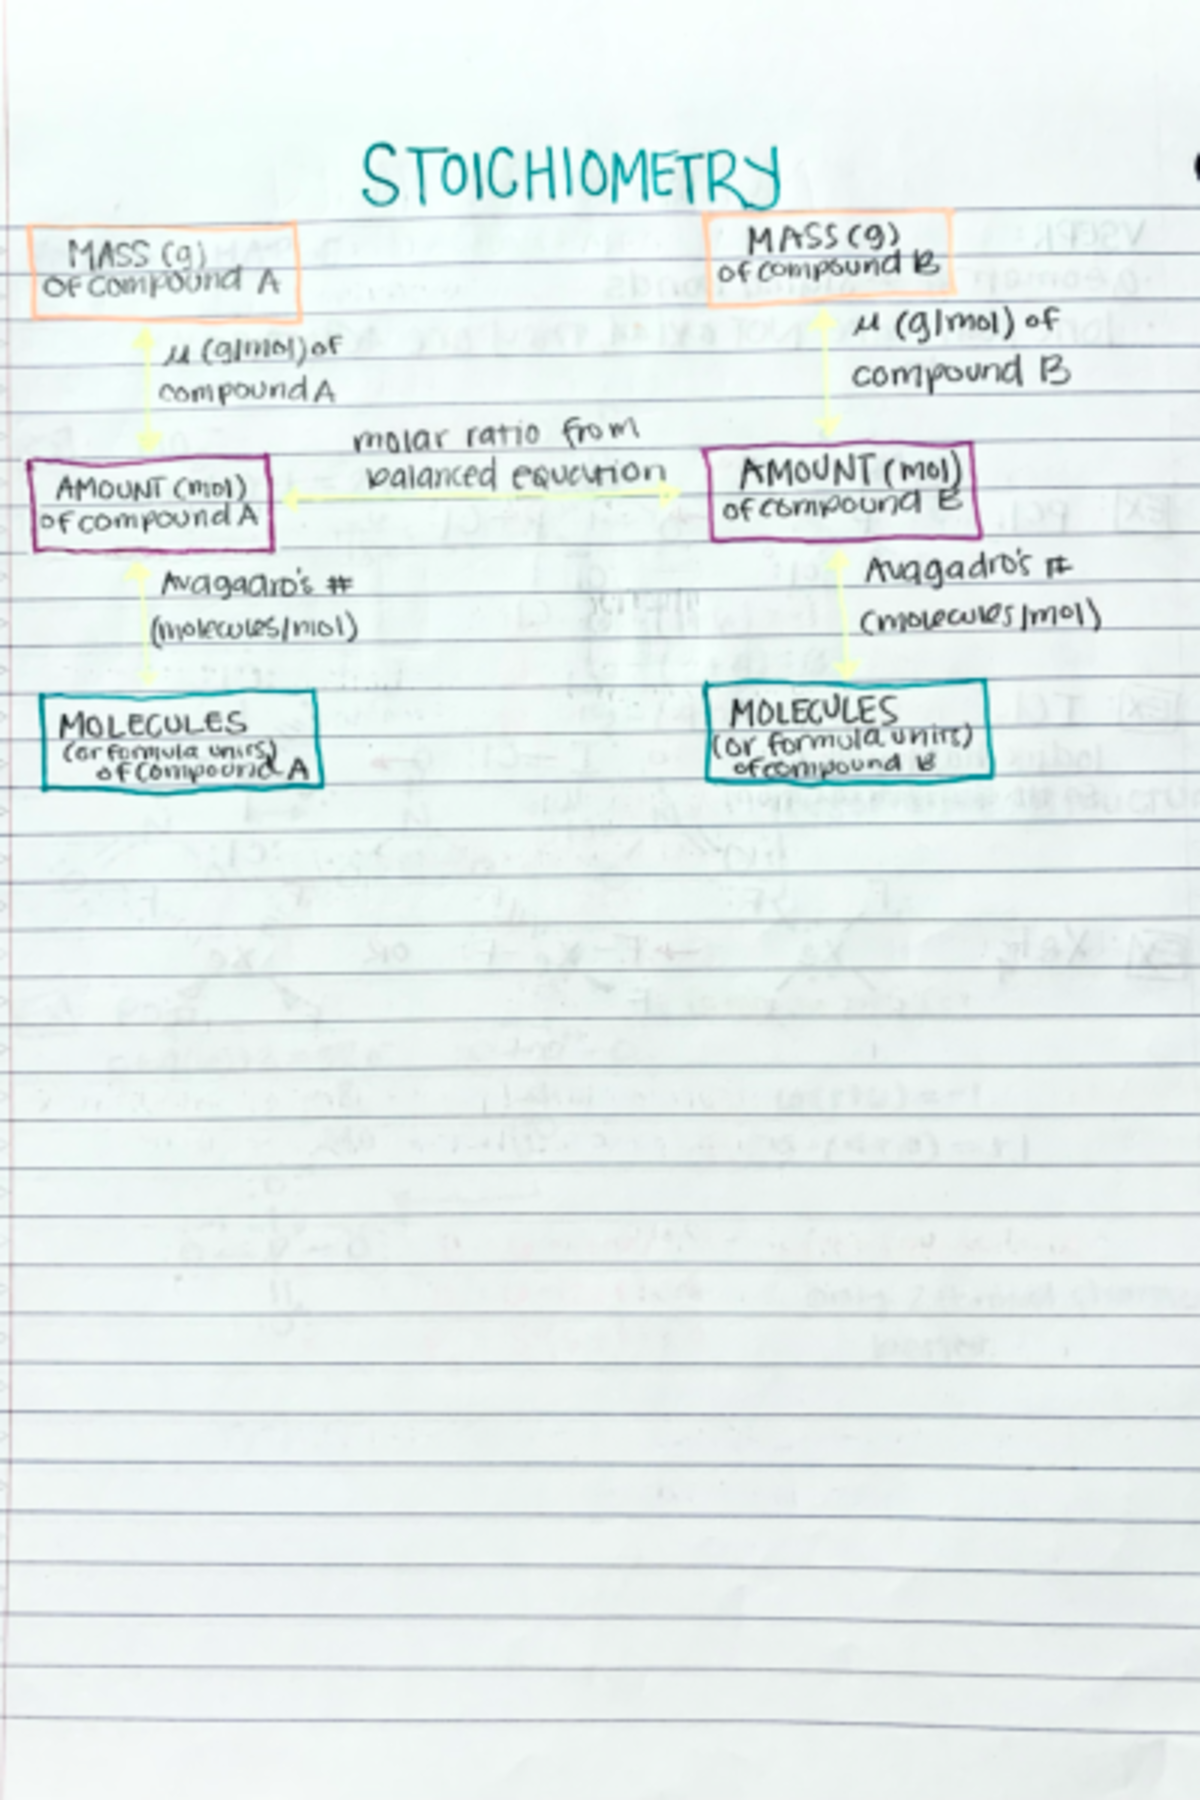 STOICHIOMETRY
MASS (g)
of compound A
MASS (g)
of compound B
μ (g/mol) of
compound A
μ (g/mol) of
compound B
molar ratio from
balanced equation
AMOUNT (mol)
of compound A
AMOUNT (mol)
of compound B
Avagadro's #
(molecules/mol)
Avagadro's #
(molecules/mol)
MOLECULES
(or formula units)
of compound A
MOLECULES
(or formula units)
of compound B